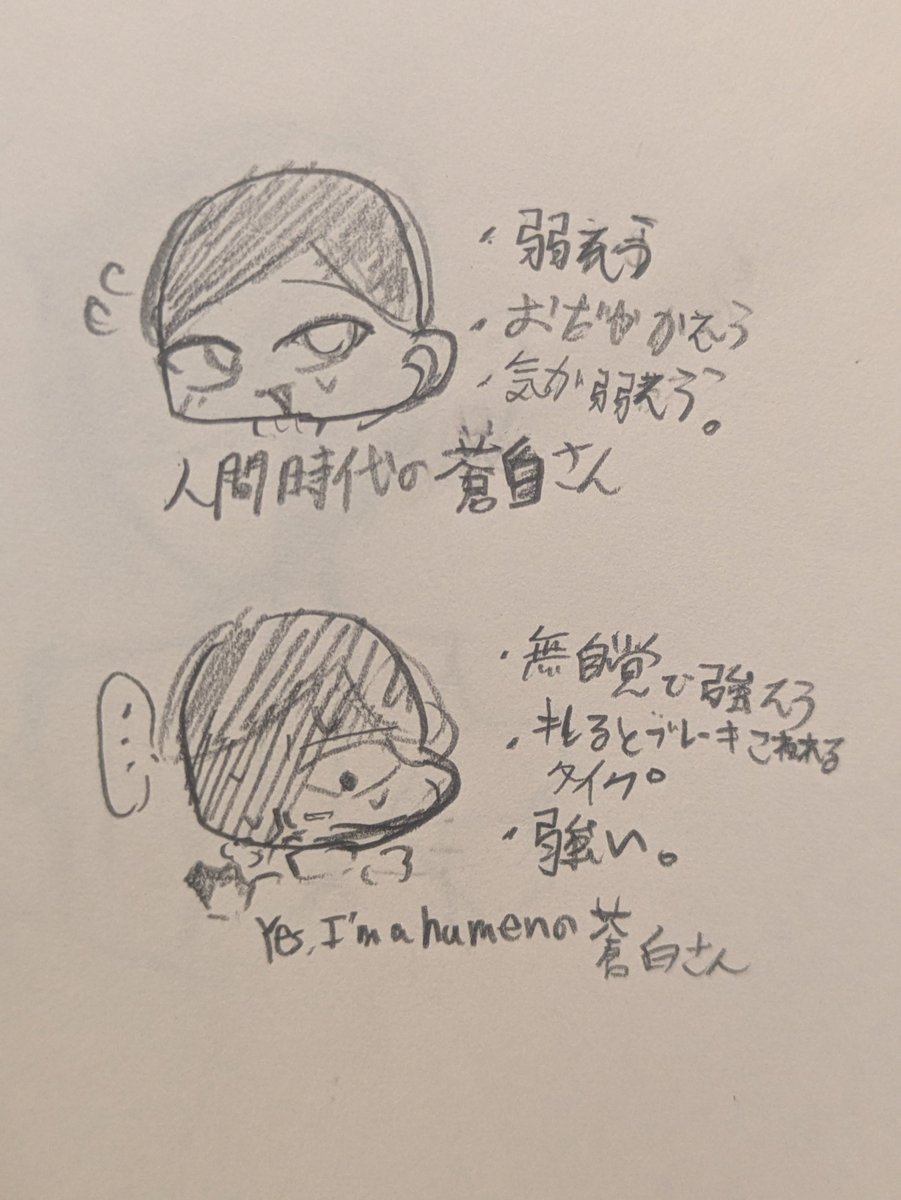 ・弱えろう
・おぢゆがえろう
・気が弱えろう。
人間時代の蒼白さん
・無自覚で強えろう
・キレるとブレーキこわれる
タイプ。
・強い。
Yes, I'm a humenの蒼白さん